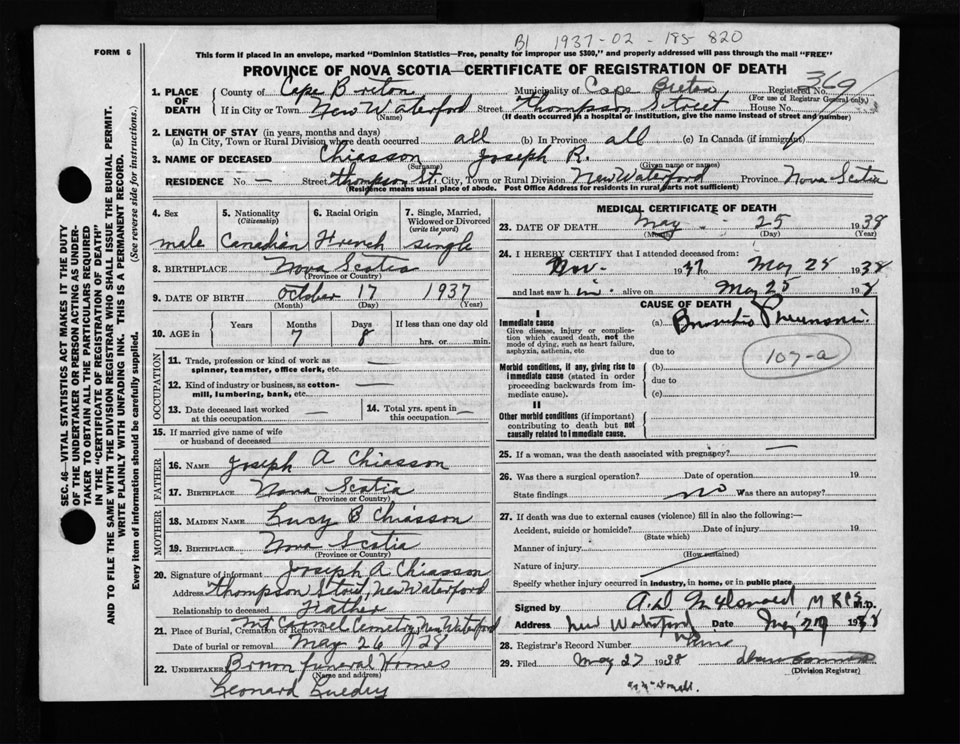 B1 1937-02-185-820
FORM 6
This form if placed in an envelope, marked "Dominion Statistics—Free, penalty for improper use $300," and properly addressed will pass through the mail "FREE"
PROVINCE OF NOVA SCOTIA—CERTIFICATE OF REGISTRATION OF DEATH
1. PLACE OF DEATH County of Cape Breton Municipality of Cape Breton Registered No. 369
(For use of Registrar General only.)
If in City or Town New Waterford Street Thompson Street House No.
(Name) (If death occurred in a hospital or institution, give the name instead of street and number)
2. LENGTH OF STAY (in years, months and days)
(a) In City, Town or Rural Division where death occurred all (b) In Province all (c) In Canada (if immigrant)
3. NAME OF DECEASED Chiasson Joseph R.
(Surname) (Given name or names)
RESIDENCE No. — Street Thompson St. City, Town or Rural Division New Waterford Province Nova Scotia
(Residence means usual place of abode. Post Office Address for residents in rural parts not sufficient)
SEC. 46—VITAL STATISTICS ACT MAKES IT THE DUTY
OF THE UNDERTAKER OR PERSON ACTING AS UNDER-
TAKER TO OBTAIN ALL THE PARTICULARS REQUIRED
IN THE "CERTIFICATE OF REGISTRATION OF DEATH"
AND TO FILE THE SAME WITH THE DIVISION REGISTRAR WHO SHALL ISSUE THE BURIAL PERMIT.
WRITE PLAINLY WITH UNFADING INK. THIS IS A PERMANENT RECORD.
Every item of information should be carefully supplied. (See reverse side for instructions.)
4. Sex 5. Nationality (Citizenship) 6. Racial Origin 7. Single, Married, Widowed or Divorced (write the word)
male Canadian French single
8. BIRTHPLACE Nova Scotia
(Province or Country)
9. DATE OF BIRTH October 17 1937
(Month) (Day) (Year)
10. AGE in Years Months Days If less than one day old
7 8 hrs. or min.
OCCUPATION
11. Trade, profession or kind of work as spinner, teamster, office clerk, etc. —
12. Kind of industry or business, as cotton-mill, lumbering, bank, etc. —
13. Date deceased last worked at this occupation — 14. Total yrs. spent in this occupation —
15. If married give name of wife or husband of deceased
FATHER
16. NAME Joseph A Chiasson
17. BIRTHPLACE Nova Scotia
(Province or Country)
MOTHER
18. MAIDEN NAME Lucy B Chiasson
19. BIRTHPLACE Nova Scotia
(Province or Country)
20. Signature of informant Joseph A Chiasson
Address Thompson Street, New Waterford
Relationship to deceased Father
21. Place of Burial, Cremation or Removal Mt Carmel Cemetery, New Waterford
Date of burial or removal May 26 1938
22. UNDERTAKER Brown Funeral Homes
(Name and address)
Leonard
MEDICAL CERTIFICATE OF DEATH
23. DATE OF DEATH May 25 1938
(Month) (Day)
24. I HEREBY CERTIFY that I attended deceased from:
Nov. 1937 to May 25 1938
and last saw h im alive on May 25 1938
CAUSE OF DEATH
I
Immediate cause (a) Broncho Pneumonia
Give disease, injury or complication which caused death, not the mode of dying, such as heart failure, asphyxia, asthenia, etc
due to
107-a
Morbid conditions, if any, giving rise to immediate cause (stated in order proceeding backwards from immediate cause). (b)
due to
(c)
II
Other morbid conditions (if important) contributing to death but not causally related to immediate cause.
25. If a woman, was the death associated with pregnancy? —
26. Was there a surgical operation? Date of operation 19
State findings no Was there an autopsy?
27. If death was due to external causes (violence) fill in also the following:—
Accident, suicide or homicide? Date of injury 19
(State which)
Manner of injury
(How sustained)
Nature of injury
Specify whether injury occurred in industry, in home, or in public place
Signed by M.D.
Address New Waterford Date May 29 1938
28. Registrar's Record Number
29. Filed May 27 1938
(Division Registrar)